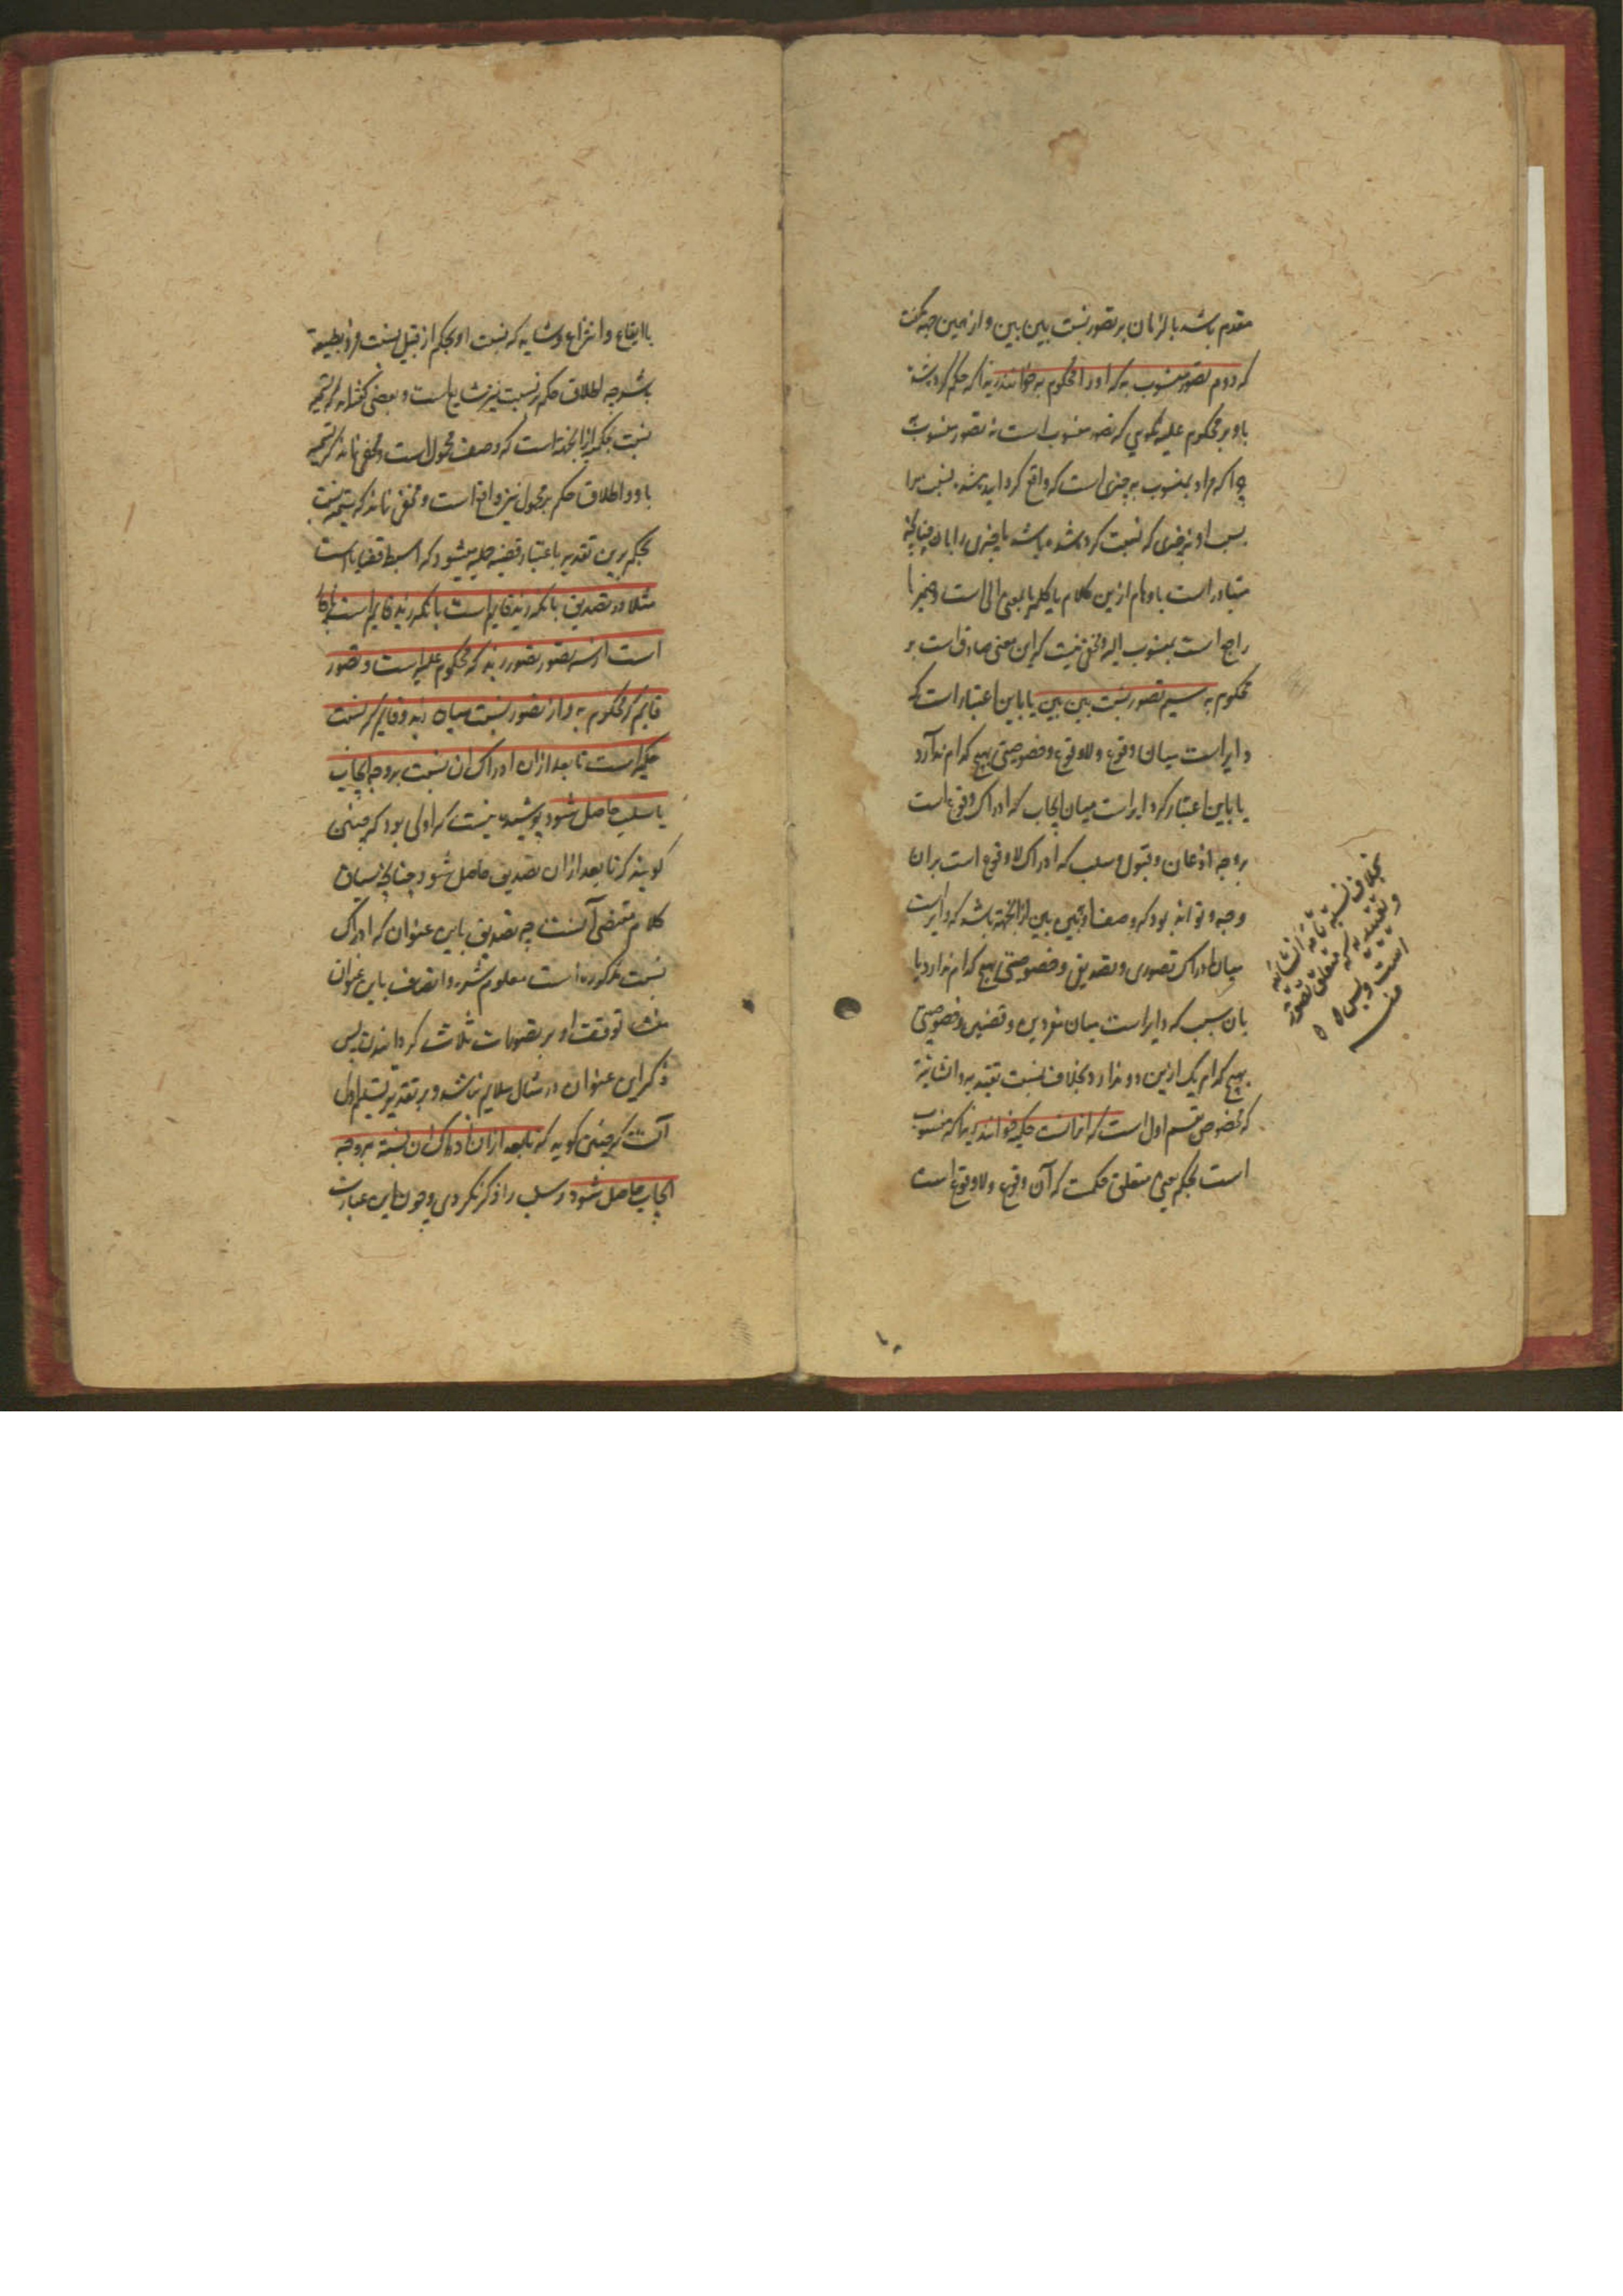 مقدم باشد بالزمان بر تصور نسبت بین بین و از همین جهه گفت
که دوم تصور منسوب به که او را محکوم به خوانند زیرا که حکم کرده شد
باو بر محکوم علیه نگویی که تصور منسوب است نه تصور منسوب به
چرا که مراد بمنسوب به چیزی است که واقع کرده اید شده نسبت مرا
بسبب او نه چیزی که نسبت کرده شده باشد یا چیزی را بان چنانچه
متبادر است باوهام ازین کلام یا کلمه با بمعنی الی است و ضمیر با
راجع است بمنسوب الیه و مخفی نیست که این معنی صادق است بر
محکوم به سیم تصور نسبت بین بین یا باین اعتبار است که
دایر است میان وقوع و لا وقوع و خصوصیتی بهیچ کدام ندارد
یا باین اعتبار که دایر است میان ایجاب که ادراک وقوع است
بر وجه اذعان و قبول و سلب که ادراک لا وقوع است بران
وجه و تواند بود که وصف او ببین بین ازانجهة باشد که دایر است
میان ادراک تصوری و تصدیقی و خصوصیتی بهیچ کدام ندارد یا
بان سبب که دایر است میان مفردین و قضیتین و خصوصیتی
بهیچ کدام یک ازین دو ندارد بخلاف نسبت تقییدیه و انشائیه
که مخصوص بقسم اول است که انرا نسبت حکمیه خوانند زیرا که منسوب
است بحکم یعنی متعلق حکمست که آن وقوع و لا وقوع است
بخلاف نسبة تامه انشائیه
و تقییدیه که متعلق تصور
است و بس
منه
با ایقاع و انتزاع و شاید که نسبت او بحکم از قبیل نسبت فرد بطبیعة
باشد چه اطلاق حکم بر نسبت نیز شایع است و بعضی گفته‌اند که تسمیه
نسبت بحکمیه ازانجهة است که وصف محمول است و مخفی نماند که تسمیه
باو و اطلاق حکم بر محمول نیز واقع است و مخفی نماند که تسمیه نسبت
بحکم برین تقدیر باعتبار قضیه حملیه میشود که ابسط قضایا است
مثلا در تصدیق بانکه زید قایم است یا بانکه زید قایم نیست
است از سه تصور تصور زید که محکوم علیه است و تصور
قایم که محکوم به و از تصور نسبت میان زید و قایم که نسبت
حکمیه است تا بعد ازان ادراک ان نسبت بر وجه ایجاب
یا سلب حاصل شود پوشیده نیست که اولی بود که چنین
گویند که تا بعد ازان تصدیق حاصل شود چنانچه سیاق
کلام مقتضی آنست چه تصدیق باین عنوان که ادراک
نسبت مذکوره است معلوم نشده و اتصاف باین عنوان
منشاء توقف او بر تصورات ثلاث گردانیدن پس
ذکر این عنوان در مثال ملایم نباشد و بر تقدیر تسلیم اول
آنست که چنین گوید که تا بعد ازان ادراک ان نسبة بر وجه
ایجاب حاصل شود و سلب را ذکر نکردی و چون این عبارت